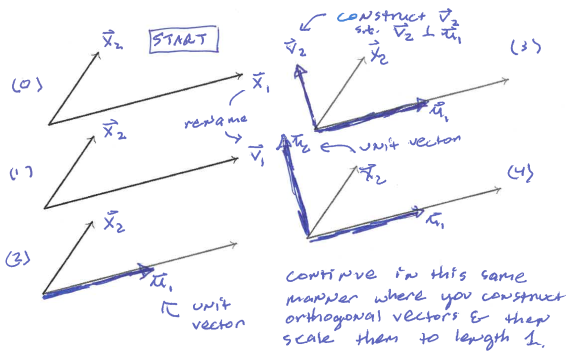 START
(0)
x⃗₂
x⃗₁
rename
(1)
x⃗₂
v⃗₁
(2)
x⃗₂
u⃗₁
unit
vector
construct v⃗₂
s.t. v⃗₂ ⊥ u⃗₁
(3)
v⃗₂
x⃗₂
u⃗₁
u⃗₂
unit vector
(4)
x⃗₂
u⃗₁
continue in this same
manner where you construct
orthogonal vectors & then
scale them to length 1.